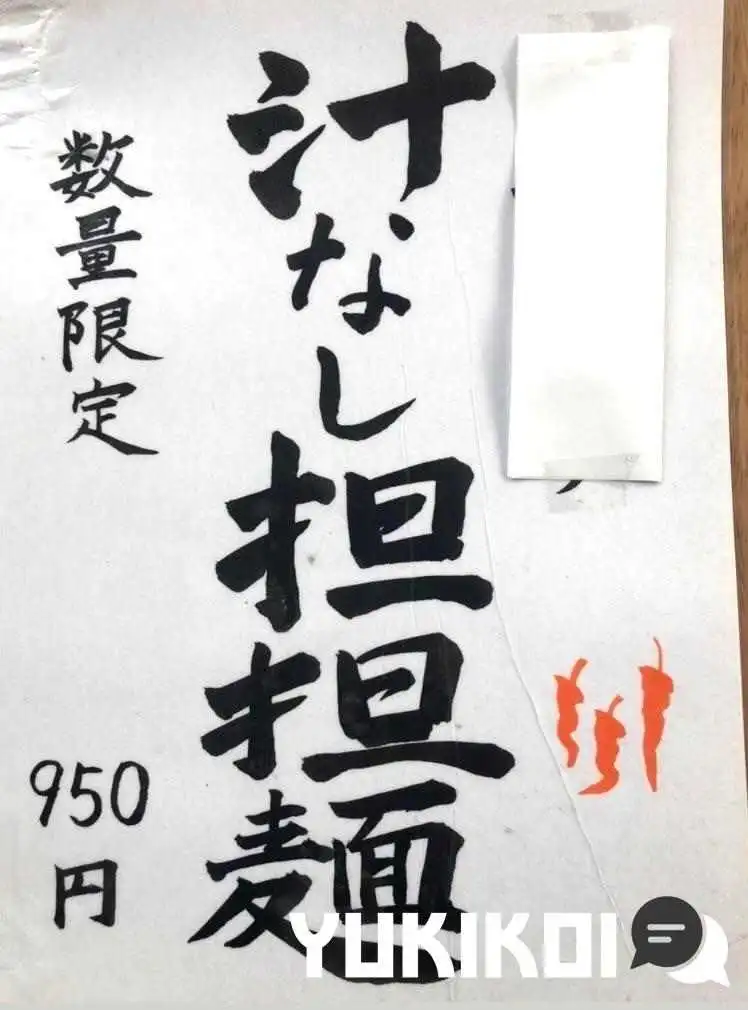 汁なし担担麺
数量限定
950円
YUKIKOI